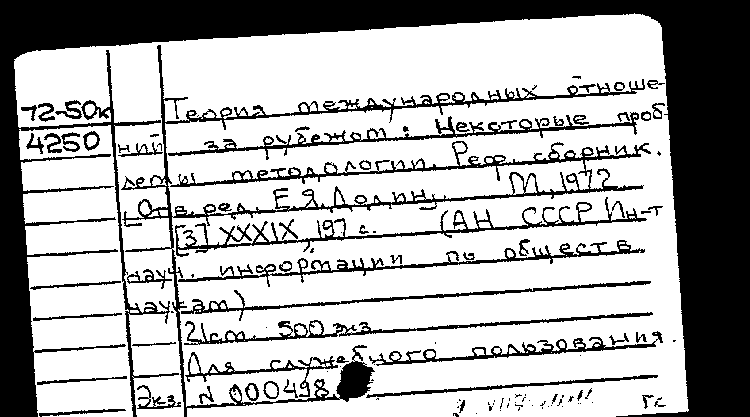 72-50к
4250
Теория международных отноше-
ний за рубежом: Некоторые проб-
лемы методологии. Реф. сборник.
[Отв. ред. Е.Я. Долин]. М, 1972.
[3], XXXIX, 197 с. (АН СССР Ин-т
науч. информации по обществ.
наукам)
21см. 500 экз.
Для служебного пользования.
Экз. N 000498.